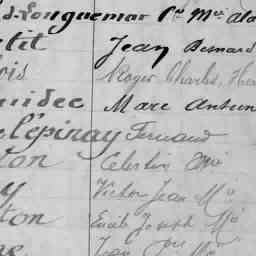 d. Longuemar Ch. Mie Ala
tit Jean Bernard
ois Roger Charles, Hen
uidec Marc Antoin
l'épinay Fernand
ton Célestin Mie
y Victor Jean Mie
ton Emile Joseph Mie
ne Jean Mie